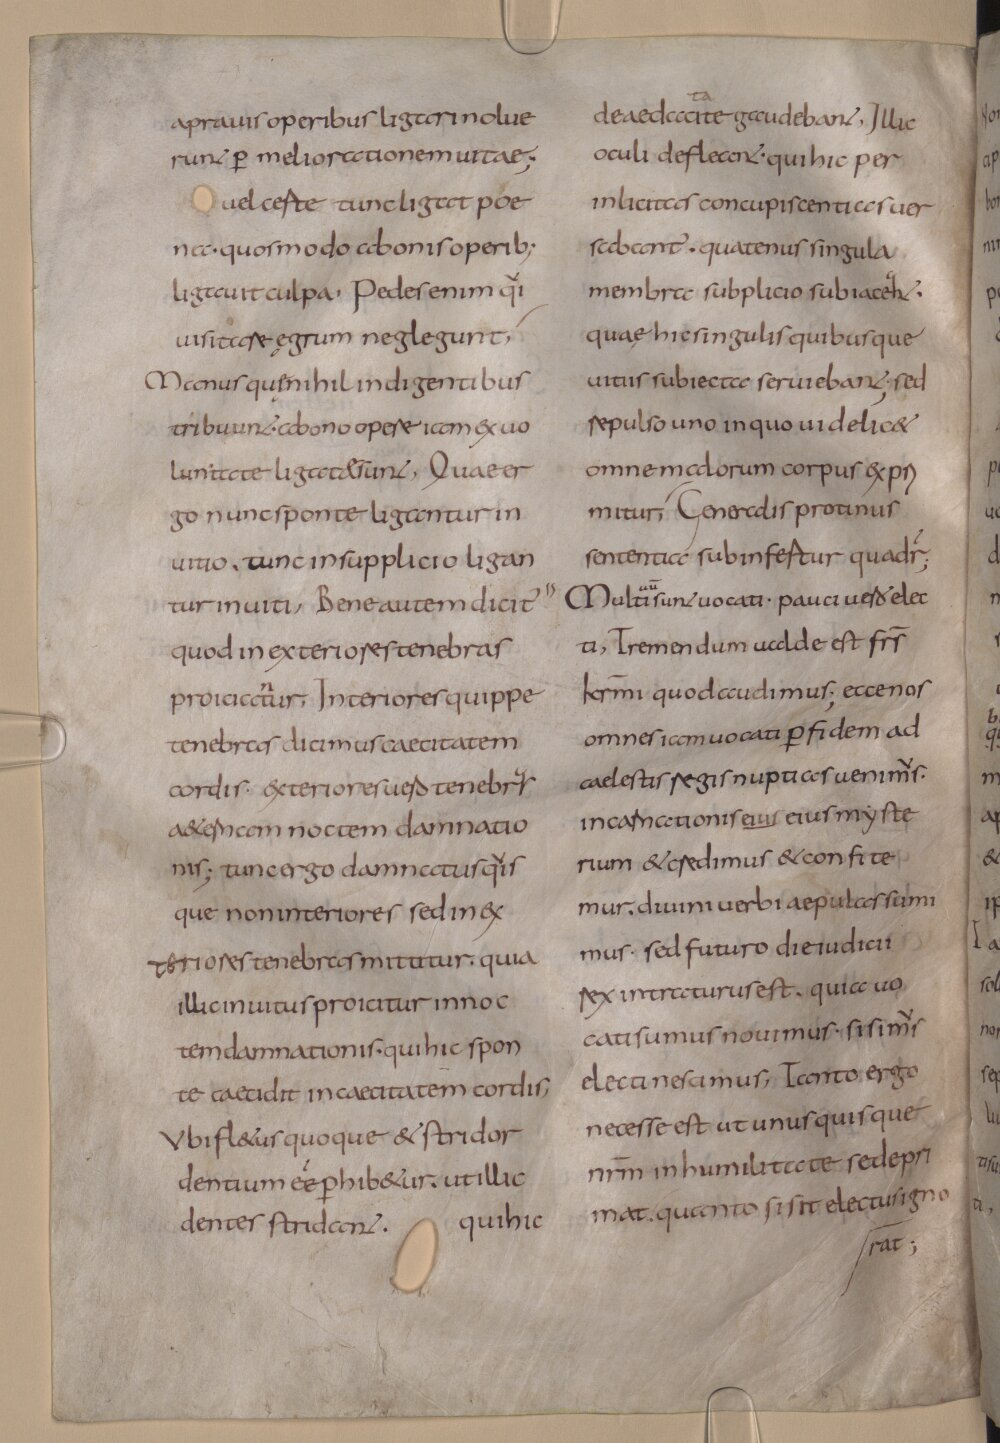 aprauis operibus ligari nolue
runt p̱ meliorationem uitae;
uel certe tunc ligat poe
na. quos modo abonis operib;
ligauit culpa, Pedes enim qui
uisitare ęgrum neglegunt,
Manus quę nihil indigentibus
tribuunt. abono opere iam ex uo
luntate ligatae sunt, Quae er
go nunc sponte ligantur in
uitio. tunc insupplicio ligan
tur inuiti, Bene autem dicit
quod in exteriores tenebras
proiciantur, Interiores quippe
tenebras dicimus caecitatem
cordis. exteriores uero tenebras
aeternam noctem damnatio
nis; tunc ergo damnatus quis
que non interiores sed in ex
teriores tenebras mittitur. quia
illic inuitus proicitur in noc
tem damnationis. qui hic spon
te caecidit in caecitatem cordis,
Vbi fletus quoque & stridor
dentium eē p̱hibetur. ut illic
dentes strideant. qui hic
deaedacitate gaudebant, Illic
oculi defleant. qui hic per
inlicitas concupiscentias uer
sabant. quatenus singula
membra subplicio subiaceant.
quae hic singulis quibusque
uitiis subiecta seruiebant. sed
repulso uno in quo uidelic&
omne malorum corpus expri
mitur, Generalis protinus
sententia subinfertur quadr;
Multi sunt uocati. pauci uero elec
ti, Tremendum ualde est frs̄
karm̄i quod audimus; ecce nos
omnes iam uocati p̱ fidem ad
caelestis regis nuptias uenimus.
incarnationis eius eius myste
rium & credimus & confite
mur. diuini uerbi aepulas sumi
mus. sed futuro die iudicii
rex intraturus est. quia uo
cati sumus nouimus. si simus
electi nescimus, Tanto ergo
necesse est ut unusquisque
nr̄m in humilitate se depri
mat. quanto si sit electus igno
rat;
ta